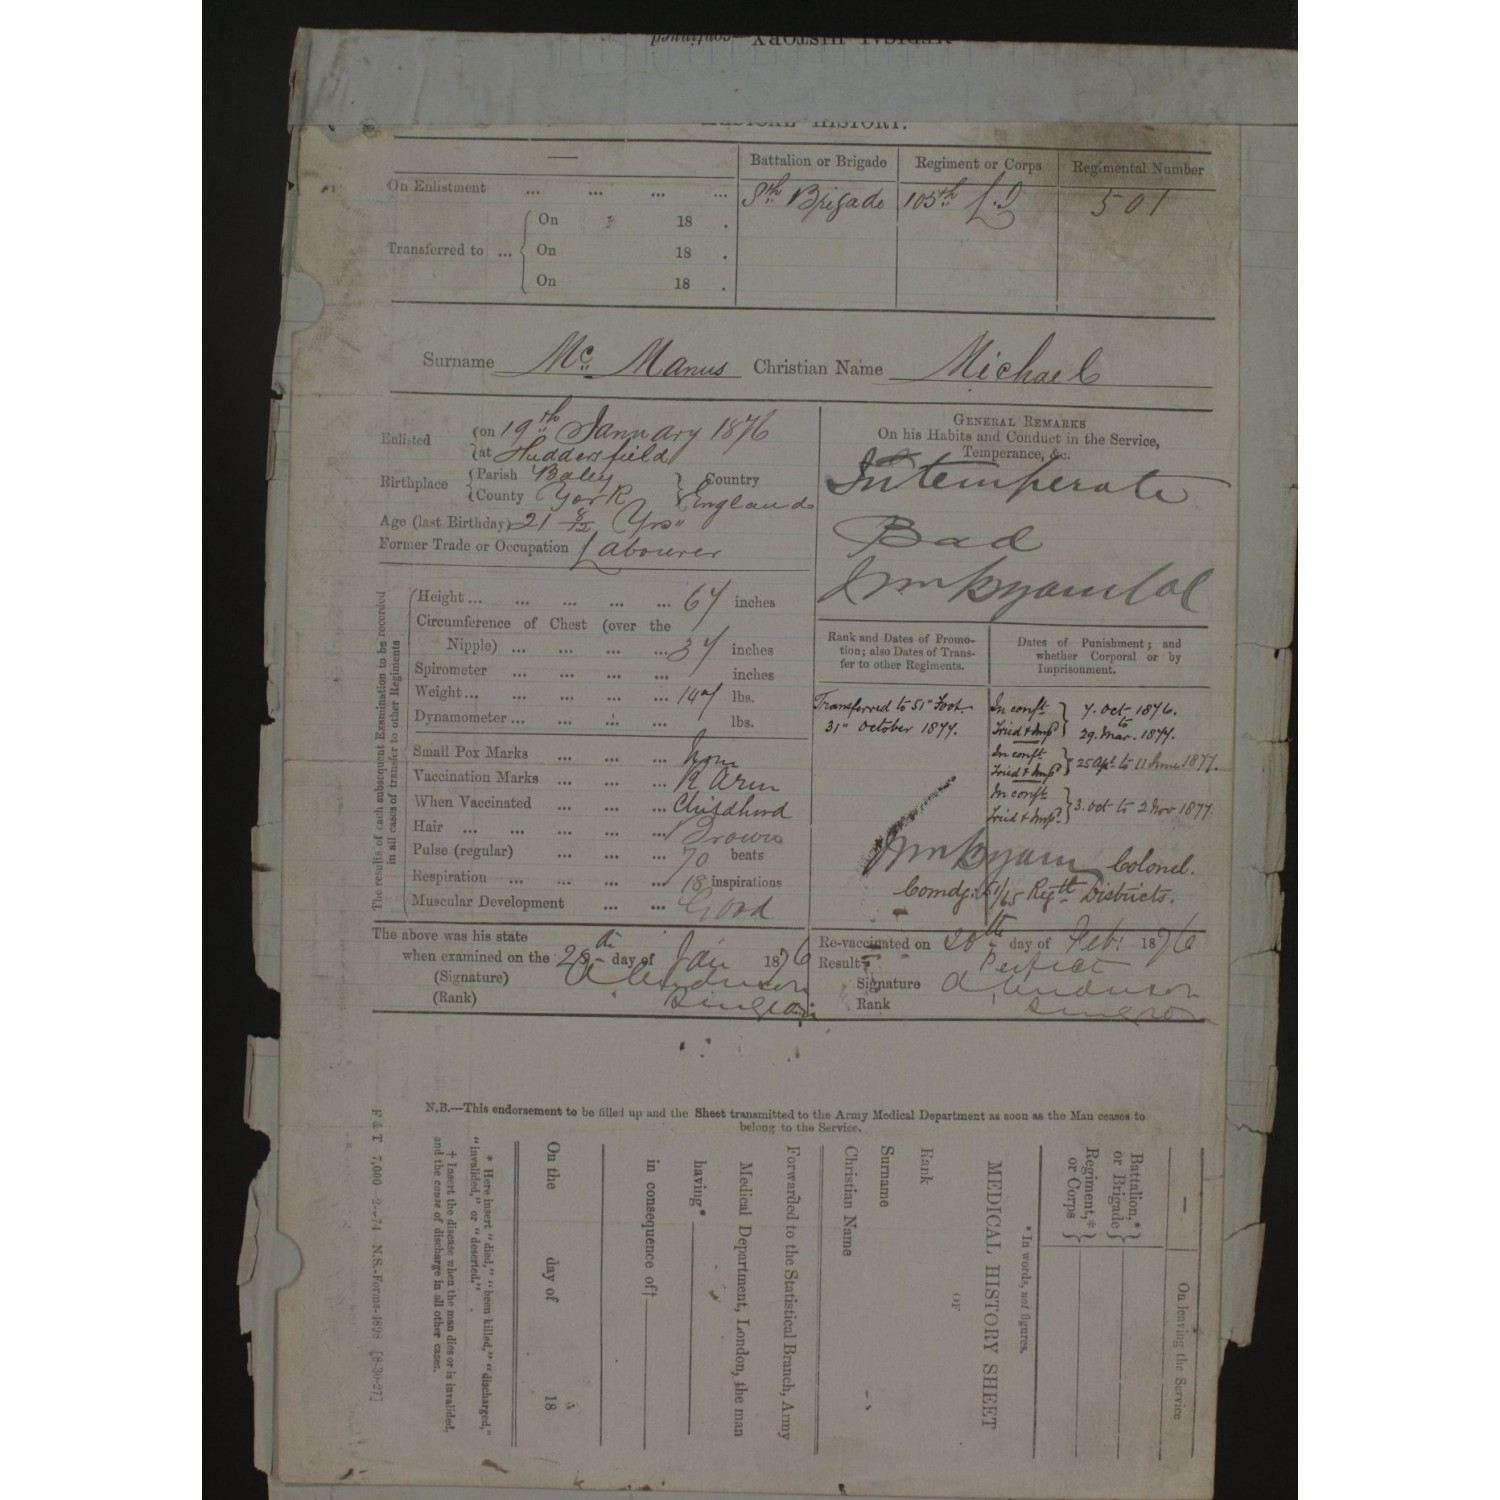 MEDICAL HISTORY—continued
MEDICAL HISTORY.
Battalion or Brigade Regiment or Corps Regimental Number
On Enlistment ... ... ... ... 8th Brigade 105th L.I 501
Transferred to ... { On 18 .
On 18 .
On 18 .
Surname Mc Manus Christian Name Michael
Enlisted { on 19th January 1876
at Huddersfield
Birthplace { Parish Batley } Country
County York England
Age (last Birthday) 21 8/12 Yrs
Former Trade or Occupation Labourer
The results of each subsequent Examination to be recorded
in all cases of transfer to other Regiments
Height ... ... ... ... ... 67 inches
Circumference of Chest (over the
Nipple) ... ... ... ... 37 inches
Spirometer ... ... ... ... inches
Weight ... ... ... ... ... 147 lbs.
Dynamometer ... ... ... ... lbs.
Small Pox Marks ... ... ... None
Vaccination Marks ... ... ... R Arm
When Vaccinated ... ... ... Childhood
Hair ... ... ... ... ... Brown
Pulse (regular) ... ... ... 70 beats
Respiration ... ... ... ... 18 inspirations
Muscular Development ... ... Good
The above was his state
when examined on the 28th day of Jan 1876
(Signature) A Anderson
(Rank) Surgeon
GENERAL REMARKS
On his Habits and Conduct in the Service,
Temperance, &c.
Intemperate
Bad
Wm Byam Col
Rank and Dates of Promo-
tion; also Dates of Trans-
fer to other Regiments.
Transferred to 51" Foot
31" October 1877.
Dates of Punishment; and
whether Corporal or by
Imprisonment.
In conft. } 7. Oct 1876.
to
Tried & Imp } 29. Mar. 1877.
In conft. } 25 Apl. to 11 June 1877.
Tried & Imp
In conft. } 3. Oct to 2 Nov 1877.
Tried & Imp.
Wm Byam Colonel.
Comdg. 51/65 Regtl Districts.
Re-vaccinated on 20th day of Feb. 1876
Result Perfect
Signature A Anderson
Rank Surgeon
N.B.—This endorsement to be filled up and the Sheet transmitted to the Army Medical Department as soon as the Man ceases to
belong to the Service.
— On leaving the Service
Battalion,*
or Brigade }
Regiment,*
or Corps }
* In words, not figures.
MEDICAL HISTORY SHEET
OF
Rank
Surname
Christian Name
Forwarded to the Statistical Branch, Army
Medical Department, London, the man
having*
in consequence of†
On the day of 18
* Here insert "died," "been killed," "discharged,"
"invalided," or "deserted."
† Insert the disease when the man dies or is invalided,
and the cause of discharge in all other cases.
F & T 7,000 2--74 N.S.-Forms-1898 [8-30-27]